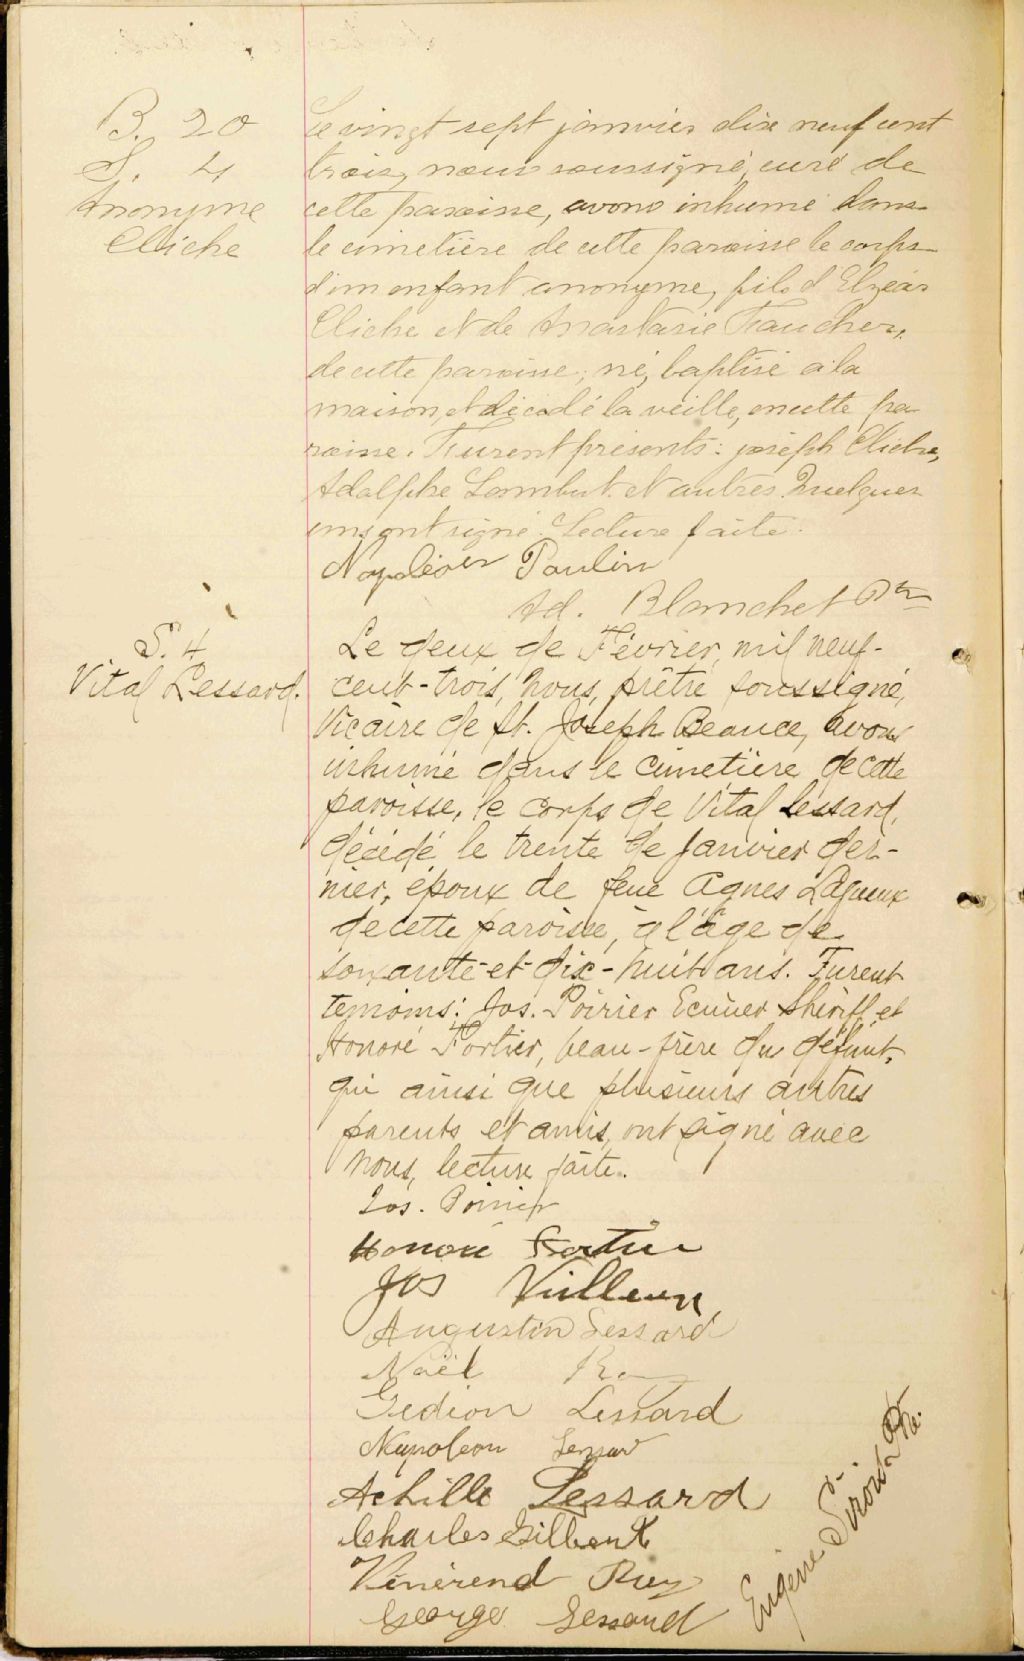 B. 20
S. 4
Anonyme
Cliche
Le vingt sept janvier dix neuf cent
trois, nous soussigné, curé de
cette paroisse, avons inhumé dans
le cimetière de cette paroisse le corps
d'un enfant anonyme, fils d'Elzéar
Cliche et de Anastasie Faucher,
de cette paroisse, né, baptisé à la
maison, et décédé la veille, en cette pa
roisse. Furent présents: joseph Cliche,
Adolphe Lambert et autres. Quelques
uns ont signé. Lecture faite.
Napoléon Poulin
Ad. Blanchet Ptre
S. 4
Vital Lessard.
Le deux de Février, mil neuf-
cent-trois, nous, prêtre soussigné,
Vicaire de St. Joseph Beauce, avons
inhumé dans le cimetière de cette
paroisse, le corps de Vital Lessard,
décédé le trente de Janvier der-
nier, époux de feue Agnes Lagueux
de cette paroisse, à l'âge de
soixante-et-dix-huit ans. Furent
temoins: Jos. Poirier Ecuier Shériff et
Honoré Fortier, beau-frère du défunt,
qui ainsi que plusieurs autres
parents et amis, ont signé avec
nous, lecture faite.
Jos. Poirier
Honoré Fortier
Jos
Augustin Lessard
Noël Roy
Gedion Lessard
Napoleon Lessard
Achille Lessard
Charles Gilbert
Vénérend Roy
George Lessard
Eugène Sirois Ptre.